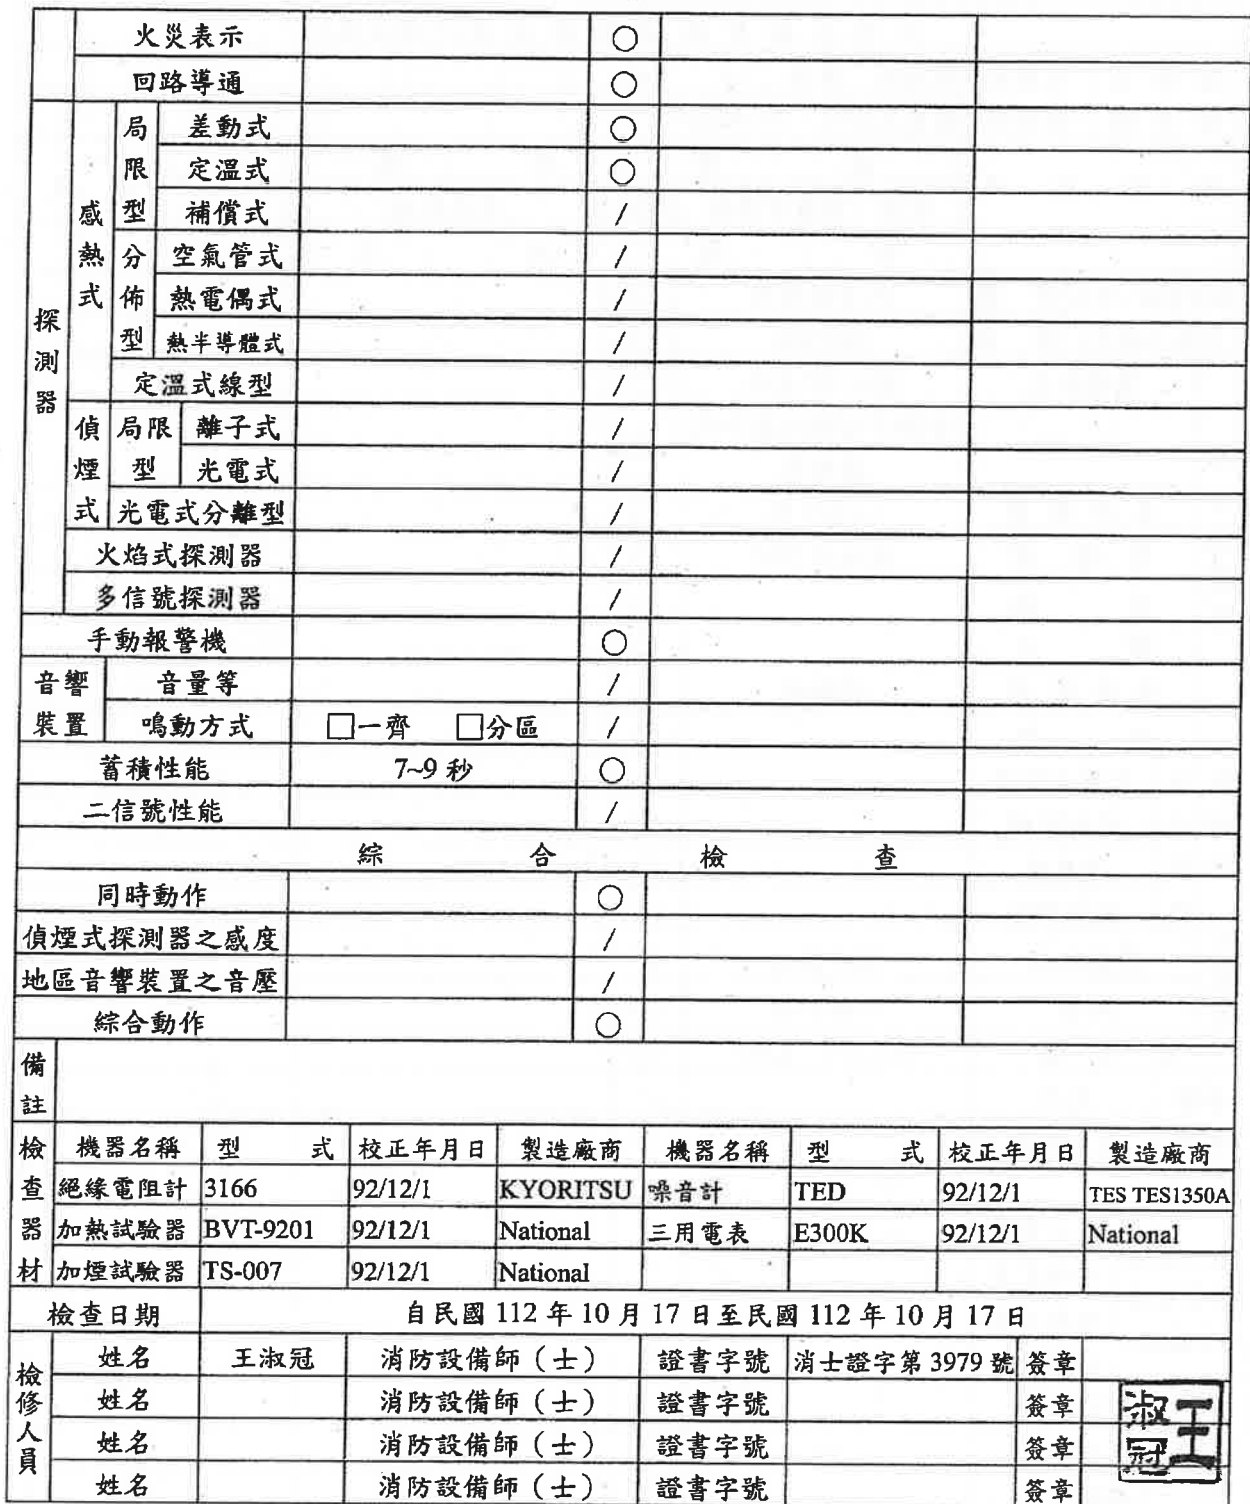 火災表示 ○
回路導通 ○
探測器 感熱式 局限型 差動式 ○
定溫式 ○
補償式 /
分佈型 空氣管式 /
熱電偶式 /
熱半導體式 /
定溫式線型 /
偵煙式 局限型 離子式 /
光電式 /
光電式分離型 /
火焰式探測器 /
多信號探測器 /
手動報警機 ○
音響裝置 音量等 /
鳴動方式 □一齊 □分區 /
蓄積性能 7~9 秒 ○
二信號性能 /
綜合檢查
同時動作 ○
偵煙式探測器之感度 /
地區音響裝置之音壓 /
綜合動作 ○
備註
檢查器材 機器名稱 型式 校正年月日 製造廠商 機器名稱 型式 校正年月日 製造廠商
絕緣電阻計 3166 92/12/1 KYORITSU 噪音計 TED 92/12/1 TES TES1350A
加熱試驗器 BVT-9201 92/12/1 National 三用電表 E300K 92/12/1 National
加煙試驗器 TS-007 92/12/1 National
檢查日期 自民國 112 年 10 月 17 日至民國 112 年 10 月 17 日
檢修人員 姓名 王淑冠 消防設備師（士） 證書字號 消士證字第 3979 號 簽章
姓名 消防設備師（士） 證書字號 簽章
姓名 消防設備師（士） 證書字號 簽章
姓名 消防設備師（士） 證書字號 簽章
王淑冠